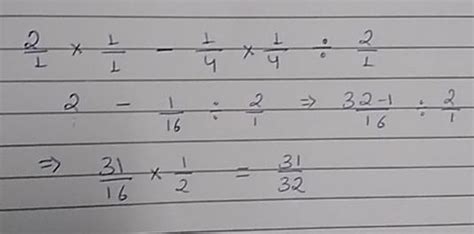 2/1 × 1/1 − 1/4 × 1/4 ÷ 2/1
2 − 1/16 ÷ 2/1 ⇒ 32-1/16 ÷ 2/1
⇒ 31/16 × 1/2 = 31/32